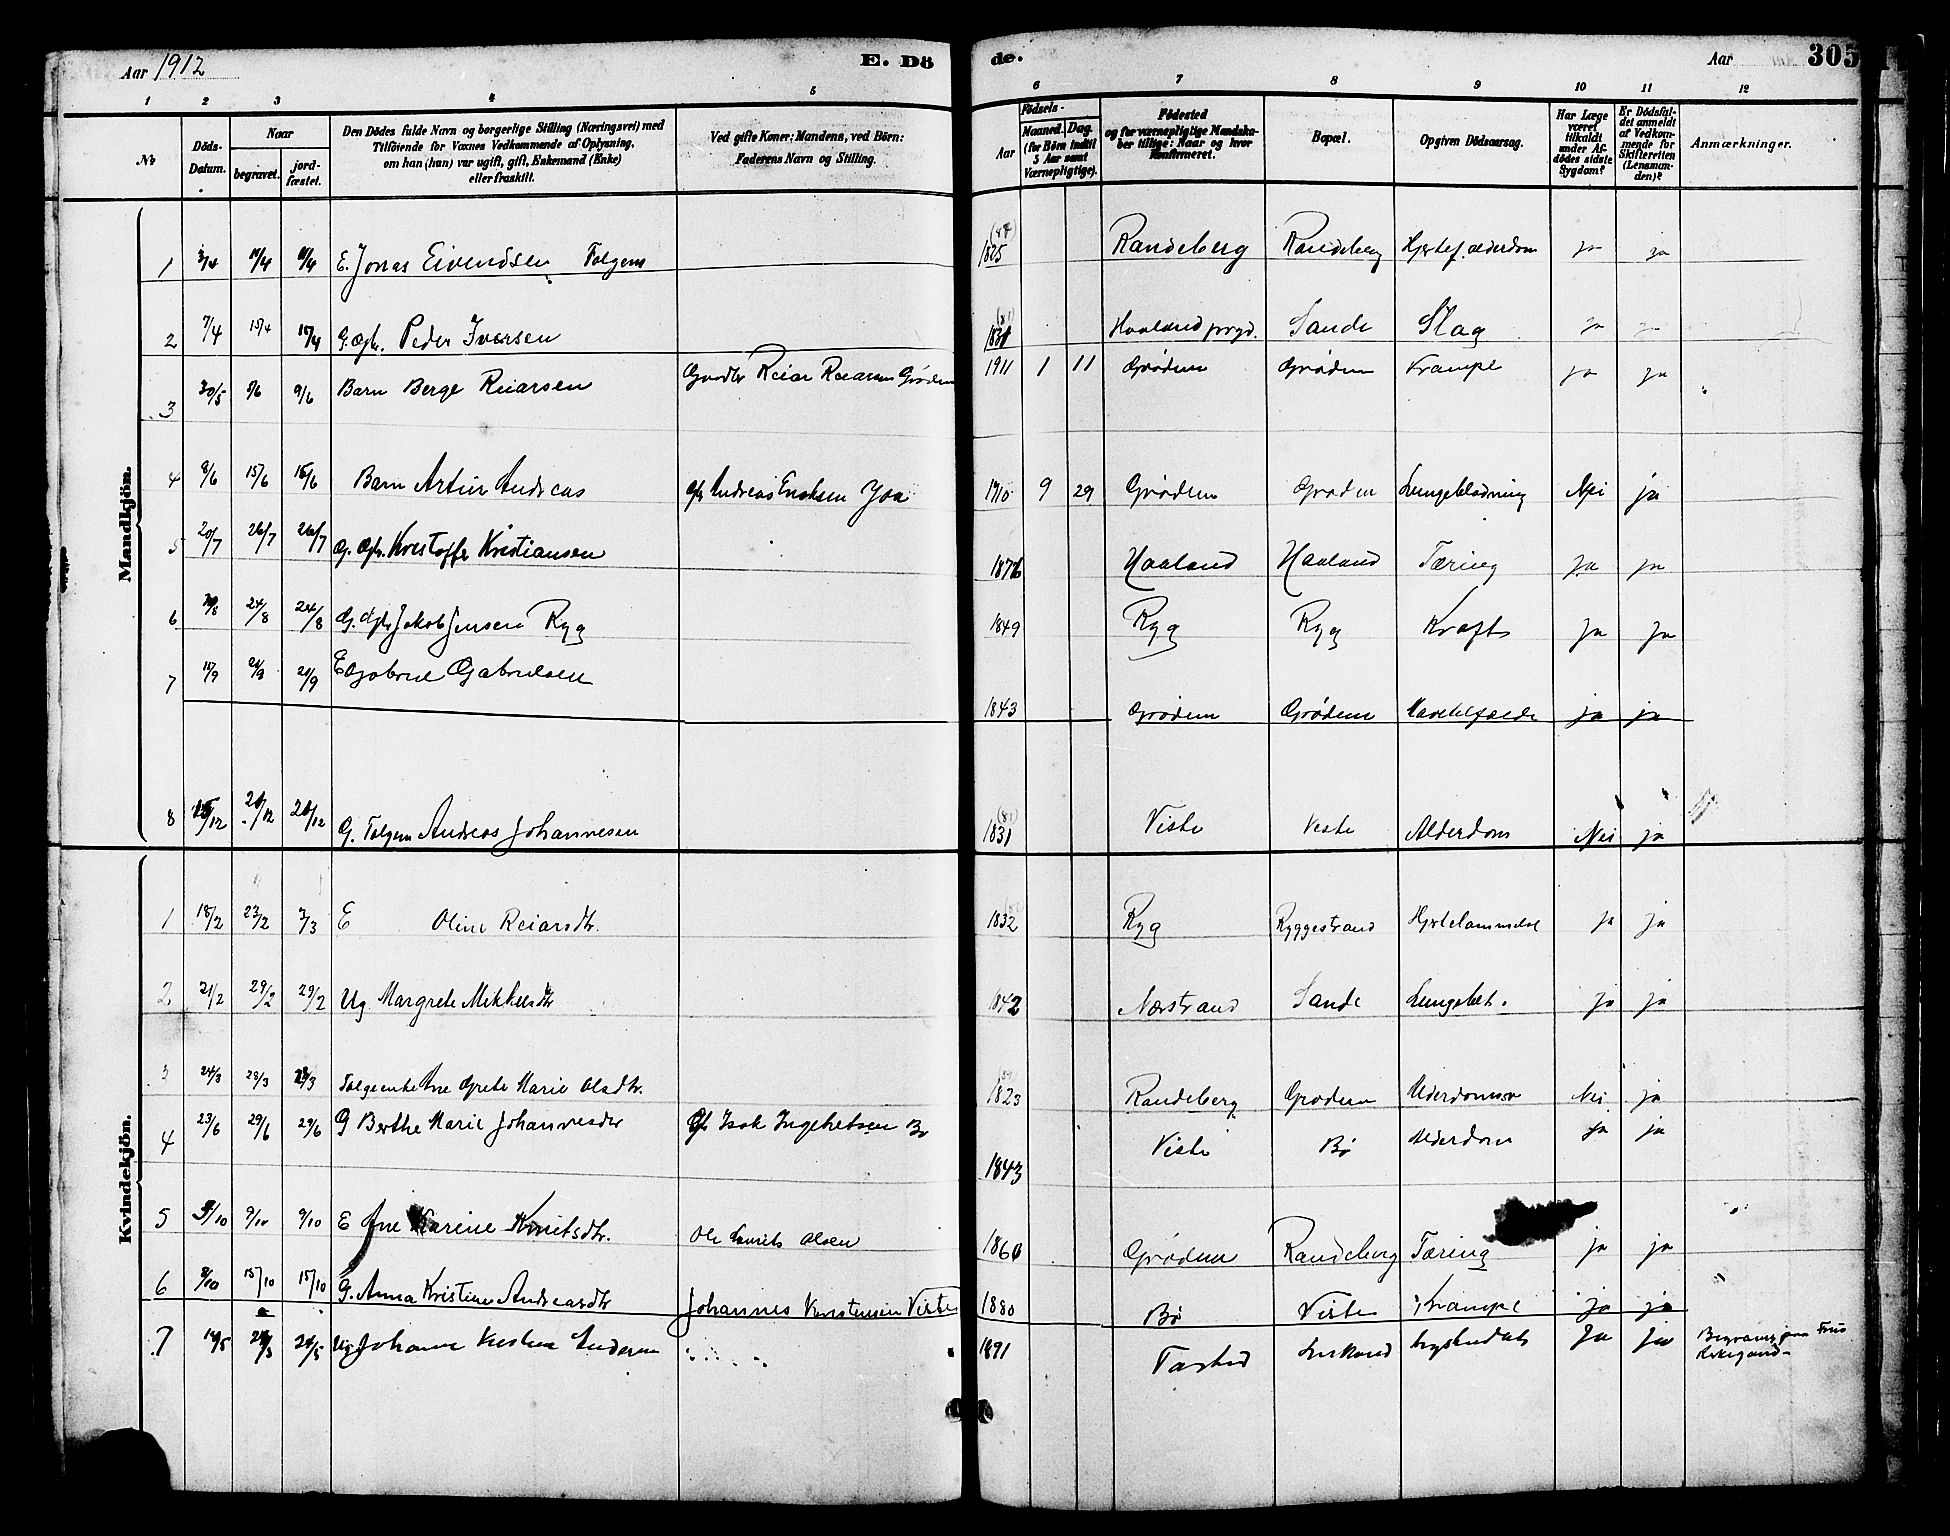 Aar 1912
E. Dö
de.
Aar
305
1 2 3 4 5 6 7 8 9 10 11 12
No
Döds-Datum.
Naar
begravet.
jordfæstet.
Den Dödes fulde Navn og borgerlige Stilling (Næringsvei) med
Tilföiende for Voxnes Vedkommende af Oplysning,
om han (hun) var ugift, gift, Enkemand (Enke)
eller fraskilt.
Ved gifte Koner: Mandens, ved Börn:
Faderens Navn og Stilling.
Födsels-
Aar
Maaned. Dag.
(for Börn indtil 5 Aar samt Værnepligtige).
Födested
og for værnepligtige Mandskaber tillige: Naar og hvor Konfirmeret.
Bopæl.
Opgiven Dödsaarsag.
Har Læge været tilkaldt under Afdödes sidste Sygdom?
Er Dödsfaldet anmeldt af Vedkommende for Skifteretten (Lensmanden)?
Anmærkninger.
Mandkjön.
1 3/4 11/4 E. Jonas Eivendsen Folgem 1825 Randeberg Randeberg Hjertef. alderdom ja ja
2 7/4 15/4 15/4 G. Peder Iversen (81) 1831 Haaland prgd. Sande Slag ja
3 30/5 9/6 9/6 Barn Berge Reiarsen Reiar Reiarsen Grødem 1911 1 11 Grødem Grødem Krampe ja ja
4 8/6 15/6 15/6 Barn Artur Andreas Andreas Enoksen Joa 1910 9 29 Grødem Grødem Lungebetædning Nei ja
5 20/7 26/7 26/7 G. Kristoffer Kristiansen 1876 Haaland Haaland Tæring ja ja
6 24/8 24/8 G. Jakob Jensen Ryg 1849 Ryg Ryg Kræft ja ja
7 15/9 20/9 E Gabriel Gabrielsen 1843 Grødem Grødem ja ja
8 20/12 20/12 G. Folgem Andreas Johannesen (81) 1831 Viste Viste Alderdom Nei ja
Kvindekjön.
1 18/2 23/2 3/3 E Oline Reiarsdtr. 1832 Ryg Ryggestrand Hjertelammelse ja ja
2 21/2 29/2 29/2 Ug. Margrete Mikkelsdtr 1842 Nærstrand Sande Lungebet. ja ja
3 24/3 28/3 28/3 Folgeenke Ane Grete Marie Olsdtr. 1823 Randeberg Grødem Alderdomssv Nei ja
4 23/6 29/6 29/6 G Berthe Marie Johannesdtr Isak Ingebretsen Bø 1843 Viste Bø Alderdom ja ja
5 5/10 9/10 9/10 E Ane Karine Knutsdtr. Ole Laurits Olsen 1860 Grødem Randeberg Tæring ja ja
6 8/10 15/10 15/10 G. Anna Kristine Andreasdtr Johannes Karstensen Viste 1880 Bø Viste Krampe ja ja
7 Ug Johanne 1891 Tasted Ja ja